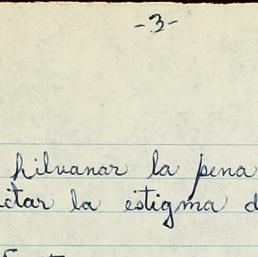 -3-
hilvanar la pena
la estigma